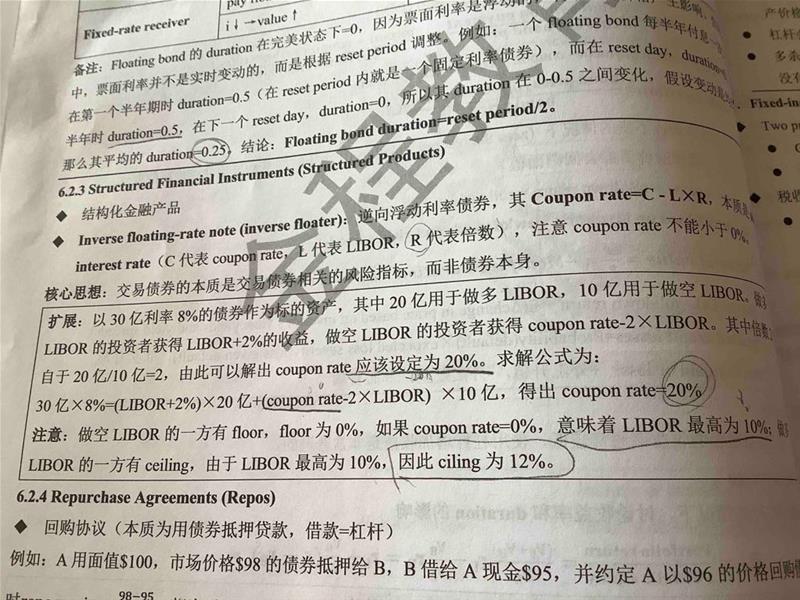 pay
Fixed-rate receiver
i↓→value ↑
备注：Floating bond 的 duration 在完美状态下=0，因为票面利率是浮动的
中，票面利率并不是实时变动的，而是根据 reset period 调整。例如：一个 floating bond 每半年付息一
在第一个半年期时 duration=0.5（在 reset period 内就是一个固定利率债券），而在 reset day，duration=
半年时 duration=0.5，在下一个 reset day，duration=0，所以其 duration 在 0-0.5 之间变化，假设变动
那么其平均的 duration=0.25，结论：Floating bond duration=reset period/2。
6.2.3 Structured Financial Instruments (Structured Products)
◆ 结构化金融产品
◆ Inverse floating-rate note (inverse floater)：逆向浮动利率债券，其 Coupon rate=C - L×R，本质是
interest rate（C 代表 coupon rate，L 代表 LIBOR，R 代表倍数），注意 coupon rate 不能小于 0%。
核心思想：交易债券的本质是交易债券相关的风险指标，而非债券本身。
扩展：以 30 亿利率 8%的债券作为标的资产，其中 20 亿用于做多 LIBOR，10 亿用于做空 LIBOR。做多
LIBOR 的投资者获得 LIBOR+2%的收益，做空 LIBOR 的投资者获得 coupon rate-2×LIBOR。其中倍数
自于 20 亿/10 亿=2，由此可以解出 coupon rate 应该设定为 20%。求解公式为：
30 亿×8%=(LIBOR+2%)×20 亿+(coupon rate-2×LIBOR) ×10 亿，得出 coupon rate=20%
注意：做空 LIBOR 的一方有 floor，floor 为 0%，如果 coupon rate=0%，意味着 LIBOR 最高为 10%；做多
LIBOR 的一方有 ceiling，由于 LIBOR 最高为 10%，因此 ciling 为 12%。
6.2.4 Repurchase Agreements (Repos)
◆ 回购协议（本质为用债券抵押贷款，借款=杠杆）
例如：A 用面值$100，市场价格$98 的债券抵押给 B，B 借给 A 现金$95，并约定 A 以$96 的价格回购
98-95
金程教育
产价格
杠杆
多杀
没有
Fixed-in
Two pri
税收